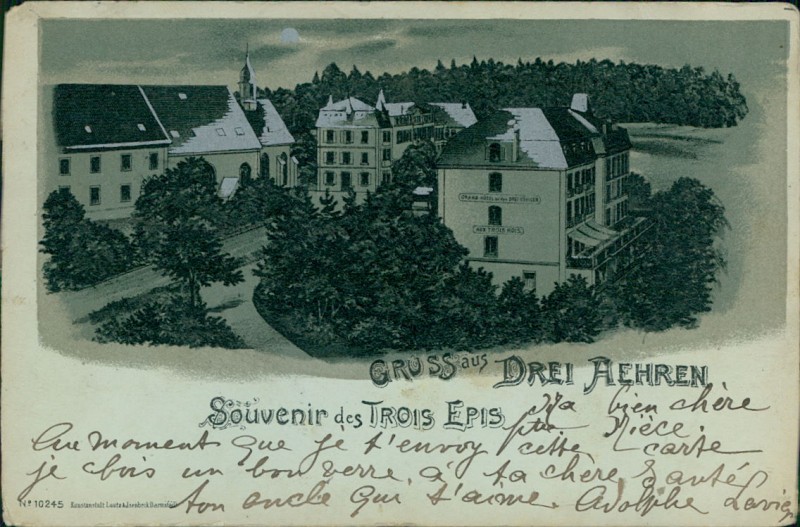 GRAND HÔTEL
AUX TROIS ROIS
GRUSS aus DREI AEHREN
Souvenir des TROIS EPIS
Ma bien chère
pte Nièce.
Au moment que je t'envoy cette carte
je bois un bon verre, à ta chère Santé
ton oncle qui t'aime. Adolphe
No 10245 Kunstanstalt Lautz & Isenbeck Darmstadt